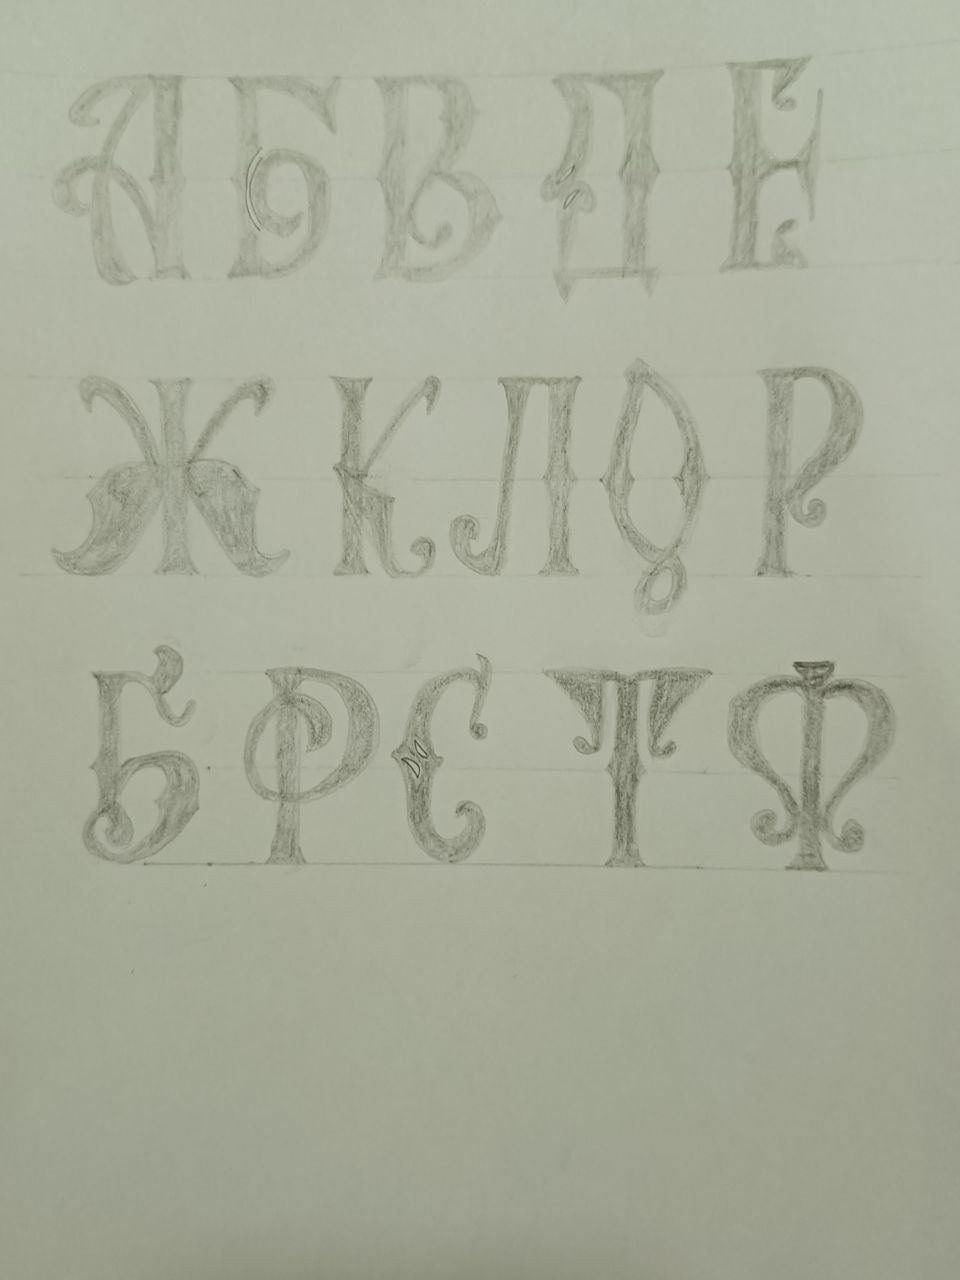 АБВДЕ
ЖКЛОР
БРСТФ